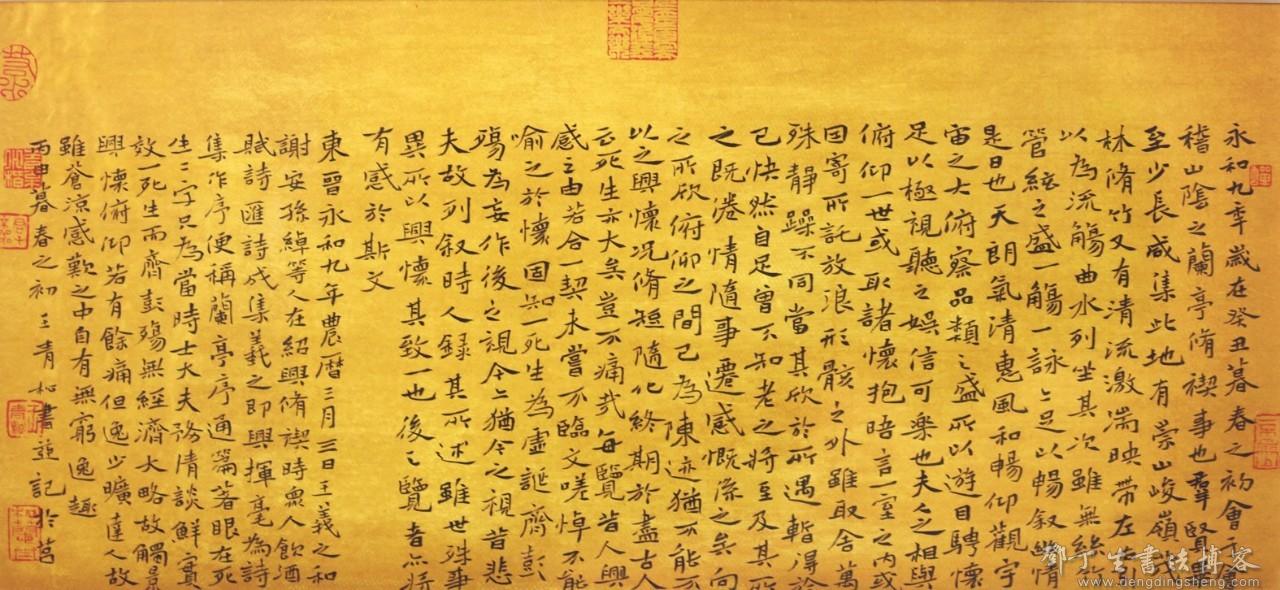 永和九年歲在癸丑暮春之初會于會
稽山陰之蘭亭脩禊事也羣賢畢
至少長咸集此地有崇山峻嶺茂
林脩竹又有清流激湍映帶左右
以為流觴曲水列坐其次雖無絲竹
管絃之盛一觴一詠亦足以暢叙幽情
是日也天朗氣清惠風和暢仰觀宇
宙之大俯察品類之盛所以遊目騁懷
足以極視聽之娛信可樂也夫人之相與
俯仰一世或取諸懷抱晤言一室之內或
因寄所託放浪形骸之外雖取舍萬
殊靜躁不同當其欣於所遇暫得於
己快然自足曾不知老之將至及其所
之既倦情隨事遷感慨係之矣向
之所欣俯仰之間已為陳迹猶不能不
以之興懷況脩短隨化終期於盡古人
云死生亦大矣豈不痛哉每覽昔人興
感之由若合一契未嘗不臨文嗟悼不能
喻之於懷固知一死生為虛誕齊彭
殤為妄作後之視今亦猶今之視昔悲
夫故列叙時人録其所述雖世殊事
異所以興懷其致一也後之覽者亦將
有感於斯文
東晉永和九年農曆三月三日王羲之和
謝安孫綽等人在紹興脩禊時眾人飲酒
賦詩匯詩成集羲之即興揮毫為詩
集作序便稱蘭亭序通篇著眼在死
生二字只為當時士大夫務清談鮮實
效一死生而齊彭殤無經濟大略故觸景
興懷俯仰若有餘痛但逸少曠達人故
雖蒼涼感歎之中自有無窮逸趣
丙申暮春之初王青和書並記於莒
鄧丁生書法博客
www.dengdingsheng.com